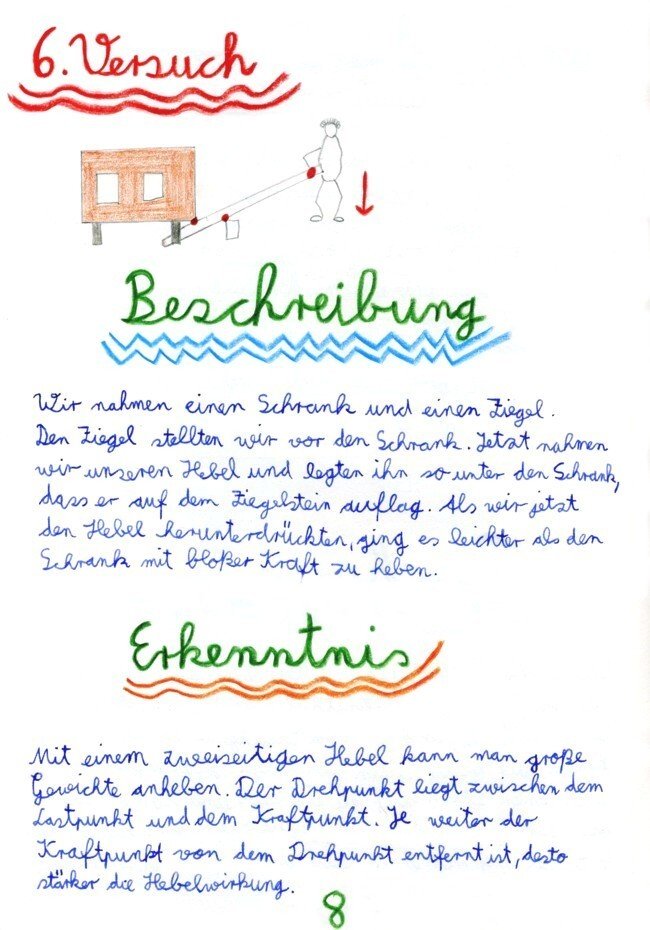 6. Versuch
Beschreibung
Wir nahmen einen Schrank und einen Ziegel.
Den Ziegel stellten wir vor den Schrank. Jetzt nahmen
wir unseren Hebel und legten ihn so unter den Schrank,
dass er auf dem Ziegelstein auflag. Als wir jetzt
den Hebel herunterdrückten, ging es leichter als den
Schrank mit bloßer Kraft zu heben.
Erkenntnis
Mit einem zweiseitigen Hebel kann man große
Gewichte anheben. Der Drehpunkt liegt zwischen dem
Lastpunkt und dem Kraftpunkt. Je weiter der
Kraftpunkt von dem Drehpunkt entfernt ist, desto
stärker die Hebelwirkung.
8